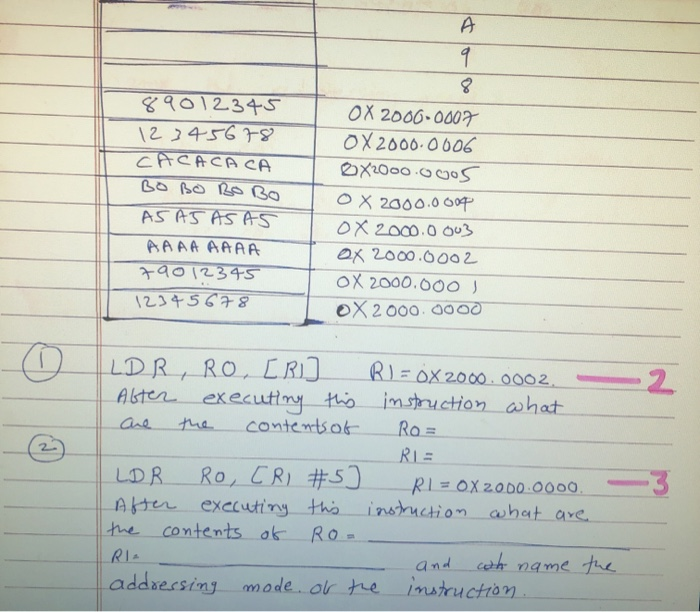 A
9
8
89012345 0X2000.0007
12345678 0X2000.0006
CACACACA 0X2000.0005
B0 B0 B0 B0 0X2000.0004
A5 A5 A5 A5 0X2000.0003
AAAA AAAA 0X2000.0002
79012345 0X2000.0001
12345678 0X2000.0000
1 LDR, R0, [R1] R1=0X2000.0002. — 2
After executing this instruction what
are the contents of R0 =
R1 =
2
LDR R0, [R1 #5] R1=0X2000.0000. — 3
After executing this instruction what are
the contents of R0 = ____
R1= ____ and name the
addressing mode of the instruction.